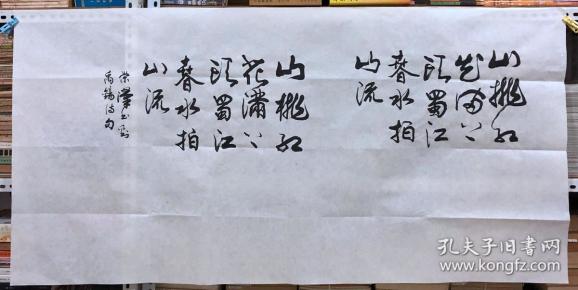 山桃红
花满上
头蜀江
春水拍
山流
山桃红
花滿上
头蜀江
春水拍
山流
书刘
禹锡诗句
孔夫子旧书网
www.kongfz.com